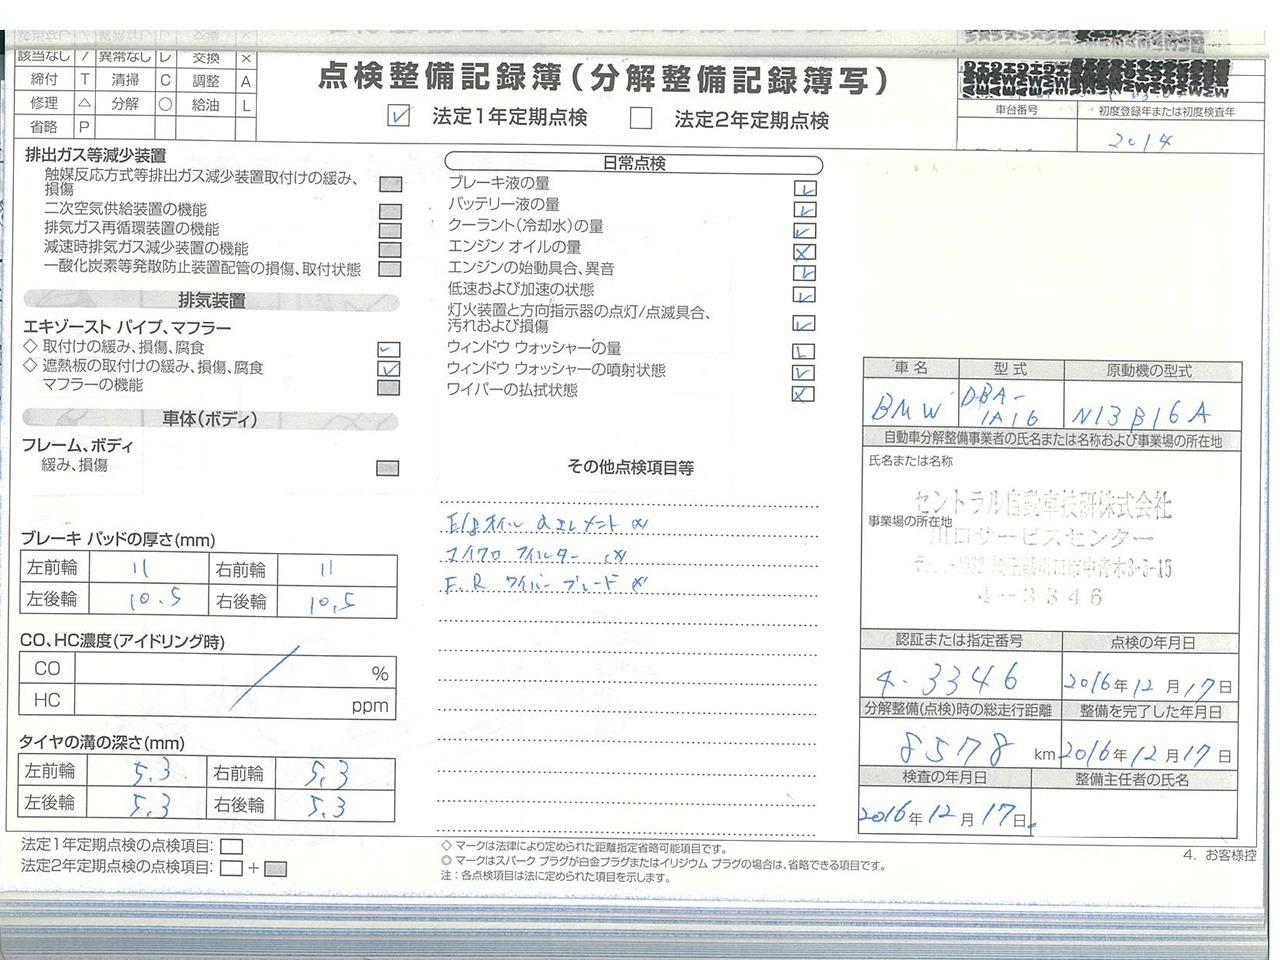 該当なし / 異常なし レ 交換 ×
締付 T 清掃 C 調整 A
修理 △ 分解 ○ 給油 L
省略 P
点検整備記録簿(分解整備記録簿写)
法定1年定期点検 法定2年定期点検
車台番号 初度登録年または初度検査年
2014
排出ガス等減少装置
触媒反応方式等排出ガス減少装置取付けの緩み、
損傷
二次空気供給装置の機能
排気ガス再循環装置の機能
減速時排気ガス減少装置の機能
一酸化炭素等発散防止装置配管の損傷、取付状態
排気装置
エキゾースト パイプ、マフラー
◇ 取付けの緩み、損傷、腐食
◇ 遮熱板の取付けの緩み、損傷、腐食
マフラーの機能
車体(ボディ)
フレーム、ボディ
緩み、損傷
ブレーキ パッドの厚さ(mm)
左前輪 11 右前輪 11
左後輪 10.5 右後輪 10.5
CO、HC濃度(アイドリング時)
CO %
HC ppm
タイヤの溝の深さ(mm)
左前輪 5.3 右前輪 5.3
左後輪 5.3 右後輪 5.3
法定1年定期点検の点検項目:
法定2年定期点検の点検項目: +
日常点検
ブレーキ液の量 レ
バッテリー液の量 レ
クーラント(冷却水)の量 レ
エンジン オイルの量 ×
エンジンの始動具合、異音 レ
低速および加速の状態 レ
灯火装置と方向指示器の点灯/点滅具合、
汚れおよび損傷 レ
ウィンドウ ウォッシャーの量 L
ウィンドウ ウォッシャーの噴射状態 レ
ワイパーの払拭状態 ×
その他点検項目等
E/gオイル エレメント ×
マイクロフィルター ×
F.R ワイパーブレード ×
◇ マークは法律により定められた距離指定省略可能項目です。
◎ マークはスパーク プラグが白金プラグまたはイリジウム プラグの場合は、省略できる項目です。
注:各点検項目は法に定められた項目を示します。
車名 型式 原動機の型式
BMW DBA-
1A16 N13B16A
自動車分解整備事業者の氏名または名称および事業場の所在地
氏名または名称
セントラル自動車技研株式会社
事業場の所在地
川口サービスセンター
埼玉県川口市中青木3-5-15
4-3346
認証または指定番号 点検の年月日
4-3346 2016年12月17日
分解整備(点検)時の総走行距離 整備を完了した年月日
8578 km 2016年12月17日
検査の年月日 整備主任者の氏名
2016年12月17日
4. お客様控